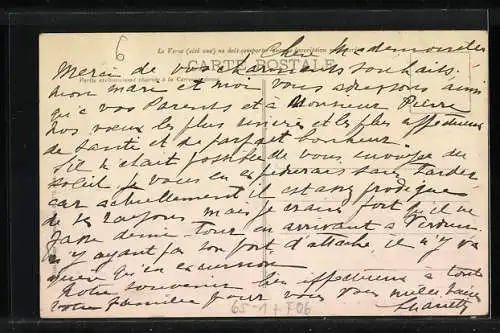 6
Le Verso (côté vue) ne doit comporter aucune inscription
CARTE POSTALE
Partie exclusivement réservée à la Correspondance
Chère Mademoiselle
Merci de vos charmants souhaits.
mon mari et moi vous adressons ainsi
qu'à vos Parents et à Monsieur Pierre
nos vœux les plus sincères et les plus affectueux
de santé et de parfait bonheur.
S'il m'était possible de vous envoyer du
soleil je vous en expédierais sans tarder
car actuellement il est assez prodigue
de ses rayons mais je crains fort qu'il ne
fasse demi tour en arrivant à Verdun
n'y ayant pas son port d'attache, il n'y va
qu'en excursion
Notre souvenir bien affectueux à toute
votre famille pour vous mille baisers
65-1+706